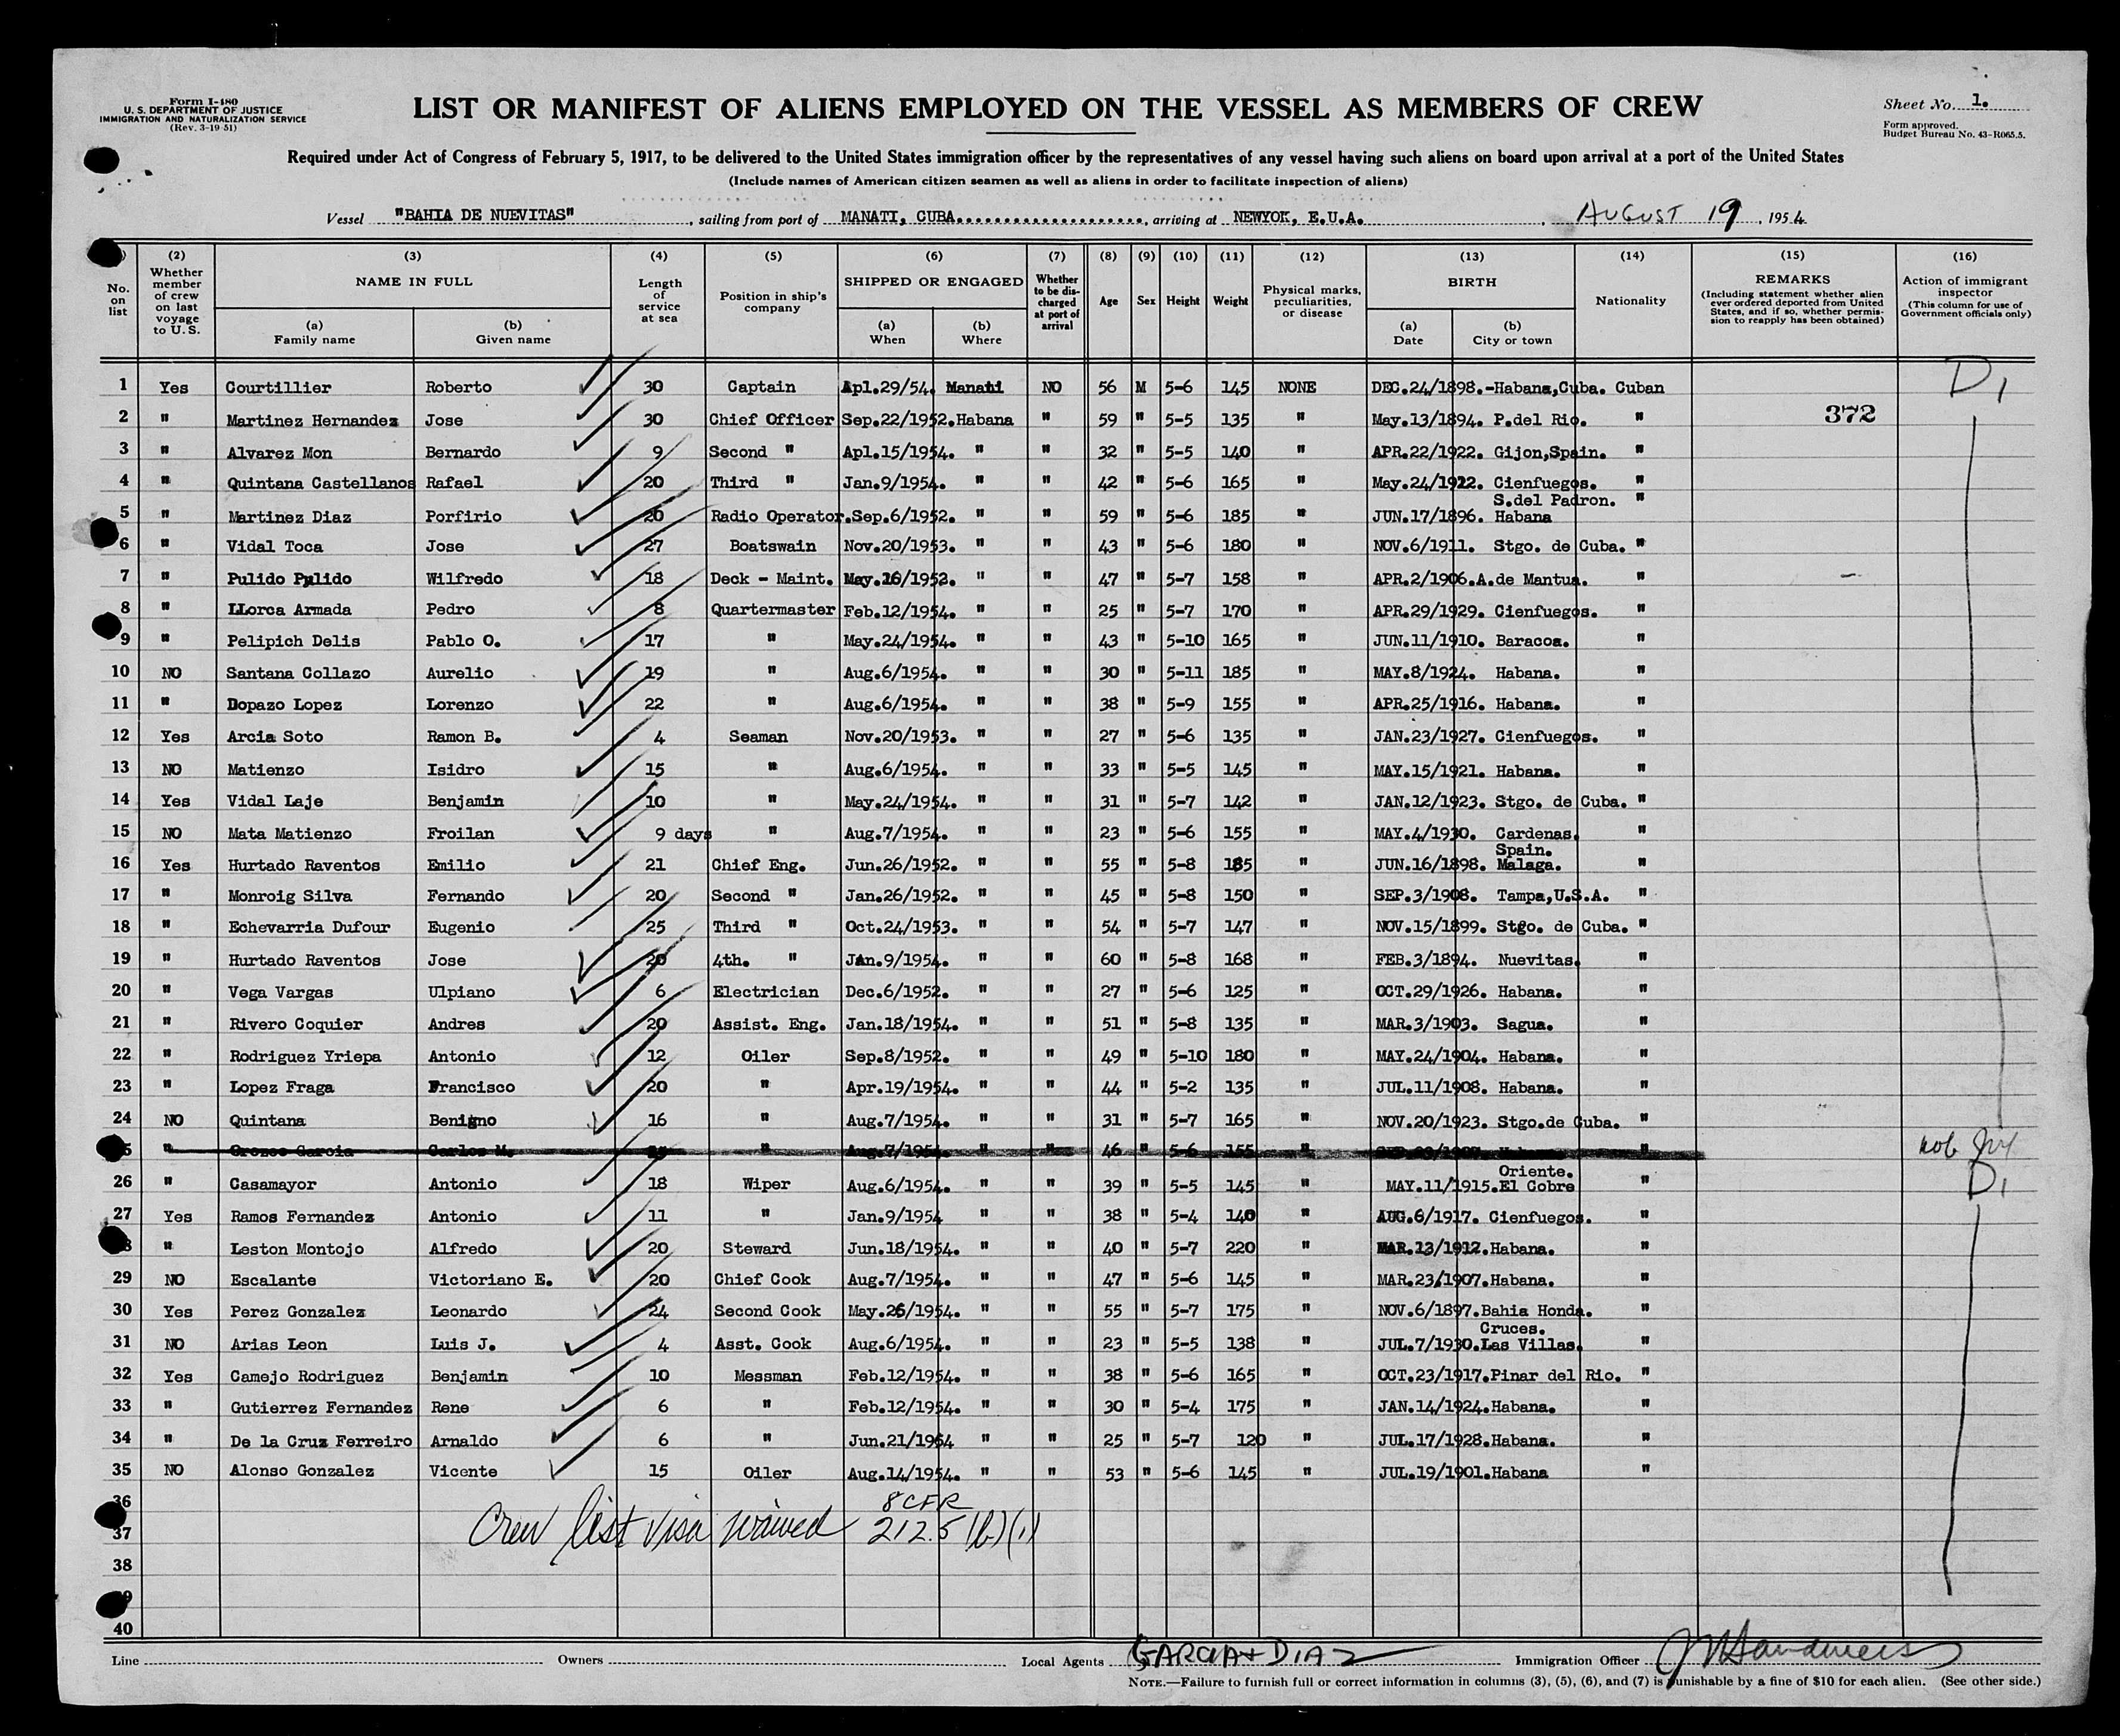 Form I-480
U. S. DEPARTMENT OF JUSTICE
IMMIGRATION AND NATURALIZATION SERVICE
(Rev. 3-19-51)
LIST OR MANIFEST OF ALIENS EMPLOYED ON THE VESSEL AS MEMBERS OF CREW
Sheet No. 1.
Form approved.
Budget Bureau No. 43-R065.5.
Required under Act of Congress of February 5, 1917, to be delivered to the United States immigration officer by the representatives of any vessel having such aliens on board upon arrival at a port of the United States
(Include names of American citizen seamen as well as aliens in order to facilitate inspection of aliens)
Vessel "BAHIA DE NUEVITAS", sailing from port of MANATI, CUBA, arriving at NEWYOK, E.U.A., AUGUST 19, 1954
No. on list (2) Whether member of crew on last voyage to U. S. (3) NAME IN FULL (a) Family name (b) Given name (4) Length of service at sea (5) Position in ship's company (6) SHIPPED OR ENGAGED (a) When (b) Where (7) Whether to be discharged at port of arrival (8) Age (9) Sex (10) Height (11) Weight (12) Physical marks, peculiarities, or disease (13) BIRTH (a) Date (b) City or town (14) Nationality (15) REMARKS (Including statement whether alien ever ordered deported from United States, and if so, whether permission to reapply has been obtained) (16) Action of immigrant inspector (This column for use of Government officials only)
1 Yes Courtillier Roberto 30 Captain Apl.29/54. Manati NO 56 M 5-6 145 NONE DEC.24/1898.-Habana,Cuba. Cuban D1
2 " Martinez Hernandez Jose 30 Chief Officer Sep.22/1952. Habana " 59 " 5-5 135 " May.13/1894. P.del Rio. " 372
3 " Alvarez Mon Bernardo 9 Second " Apl.15/1954. " " 32 " 5-5 140 " APR.22/1922. Gijon,Spain. "
4 " Quintana Castellanos Rafael 20 Third " Jan.9/1954. " " 42 " 5-6 165 " May.24/1912. Cienfuegos. "
5 " Martinez Diaz Porfirio 20 Radio Operator. Sep.6/1952. " " 59 " 5-6 185 " JUN.17/1896. S.del Padron. Habana "
6 " Vidal Toca Jose 27 Boatswain Nov.20/1953. " " 43 " 5-6 180 " NOV.6/1911. Stgo. de Cuba. "
7 " Pulido Pulido Wilfredo 18 Deck - Maint. May.16/1952. " " 47 " 5-7 158 " APR.2/1906. A.de Mantua. "
8 " LLorca Armada Pedro 8 Quartermaster Feb.12/1954. " " 25 " 5-7 170 " APR.29/1929. Cienfuegos. "
9 " Pelipich Delis Pablo O. 17 " May.24/1954. " " 43 " 5-10 165 " JUN.11/1910. Baracoa. "
10 NO Santana Collazo Aurelio 19 " Aug.6/1954. " " 30 " 5-11 185 " MAY.8/1924. Habana. "
11 " Dopazo Lopez Lorenzo 22 " Aug.6/1954. " " 38 " 5-9 155 " APR.25/1916. Habana. "
12 Yes Arcia Soto Ramon B. 4 Seaman Nov.20/1953. " " 27 " 5-6 135 " JAN.23/1927. Cienfuegos. "
13 NO Matienzo Isidro 15 " Aug.6/1954. " " 33 " 5-5 145 " MAY.15/1921. Habana. "
14 Yes Vidal Laje Benjamin 10 " May.24/1954. " " 31 " 5-7 142 " JAN.12/1923. Stgo. de Cuba. "
15 NO Mata Matienzo Froilan 9 days " Aug.7/1954. " " 23 " 5-6 155 " MAY.4/1930. Cardenas. "
16 Yes Hurtado Raventos Emilio 21 Chief Eng. Jun.26/1952. " " 55 " 5-8 185 " JUN.16/1898. Spain. Malaga. "
17 " Monroig Silva Fernando 20 Second " Jan.26/1952. " " 45 " 5-8 150 " SEP.3/1908. Tampa,U.S.A. "
18 " Echevarria Dufour Eugenio 25 Third " Oct.24/1953. " " 54 " 5-7 147 " NOV.15/1899. Stgo. de Cuba. "
19 " Hurtado Raventos Jose 20 4th. " JAn.9/1954. " " 60 " 5-8 168 " FEB.3/1894. Nuevitas. "
20 " Vega Vargas Ulpiano 6 Electrician Dec.6/1952. " " 27 " 5-6 125 " OCT.29/1926. Habana. "
21 " Rivero Coquier Andres 20 Assist. Eng. Jan.18/1954. " " 51 " 5-8 135 " MAR.3/1903. Sagua. "
22 " Rodriguez Yriepa Antonio 12 Oiler Sep.8/1952. " " 49 " 5-10 180 " MAY.24/1904. Habana. "
23 " Lopez Fraga Francisco 20 " Apr.19/1954. " " 44 " 5-2 135 " JUL.11/1908. Habana. "
24 NO Quintana Benigno 16 " Aug.7/1954. " " 31 " 5-7 165 " NOV.20/1923. Stgo.de Cuba. "
" Orozco Garcia Carlos M. " Aug.7/1954. " " 46 " 5-6 155 " Habana "
26 " Casamayor Antonio 18 Wiper Aug.6/1954. " " 39 " 5-5 145 " MAY.11/1915. Oriente. El Cobre " D1
27 Yes Ramos Fernandez Antonio 11 " Jan.9/1954 " " 38 " 5-4 140 " AUG.6/1917. Cienfuegos. "
" Leston Montojo Alfredo 20 Steward Jun.18/1954. " " 40 " 5-7 220 " MAR.13/1912. Habana. "
29 NO Escalante Victoriano E. 20 Chief Cook Aug.7/1954. " " 47 " 5-6 145 " MAR.23/1907. Habana. "
30 Yes Perez Gonzalez Leonardo 24 Second Cook May.26/1954. " " 55 " 5-7 175 " NOV.6/1897. Bahia Honda. "
31 NO Arias Leon Luis J. 4 Asst. Cook Aug.6/1954. " " 23 " 5-5 138 " JUL.7/1930. Cruces. Las Villas. "
32 Yes Camejo Rodriguez Benjamin 10 Messman Feb.12/1954. " " 38 " 5-6 165 " OCT.23/1917. Pinar del Rio. "
33 " Gutierrez Fernandez Rene 6 " Feb.12/1954. " " 30 " 5-4 175 " JAN.14/1924. Habana. "
34 " De la Cruz Ferreiro Arnaldo 6 " Jun.21/1954 " " 25 " 5-7 120 " JUL.17/1928. Habana. "
35 NO Alonso Gonzalez Vicente 15 Oiler Aug.14/1954. " " 53 " 5-6 145 " JUL.19/1901. Habana "
36
37 Crew list visa waived 8 CFR 212.5 (b)(1)
38
40
Line Owners Local Agents GARCIA & DIAZ Immigration Officer
NOTE.—Failure to furnish full or correct information in columns (3), (5), (6), and (7) is punishable by a fine of $10 for each alien. (See other side.)